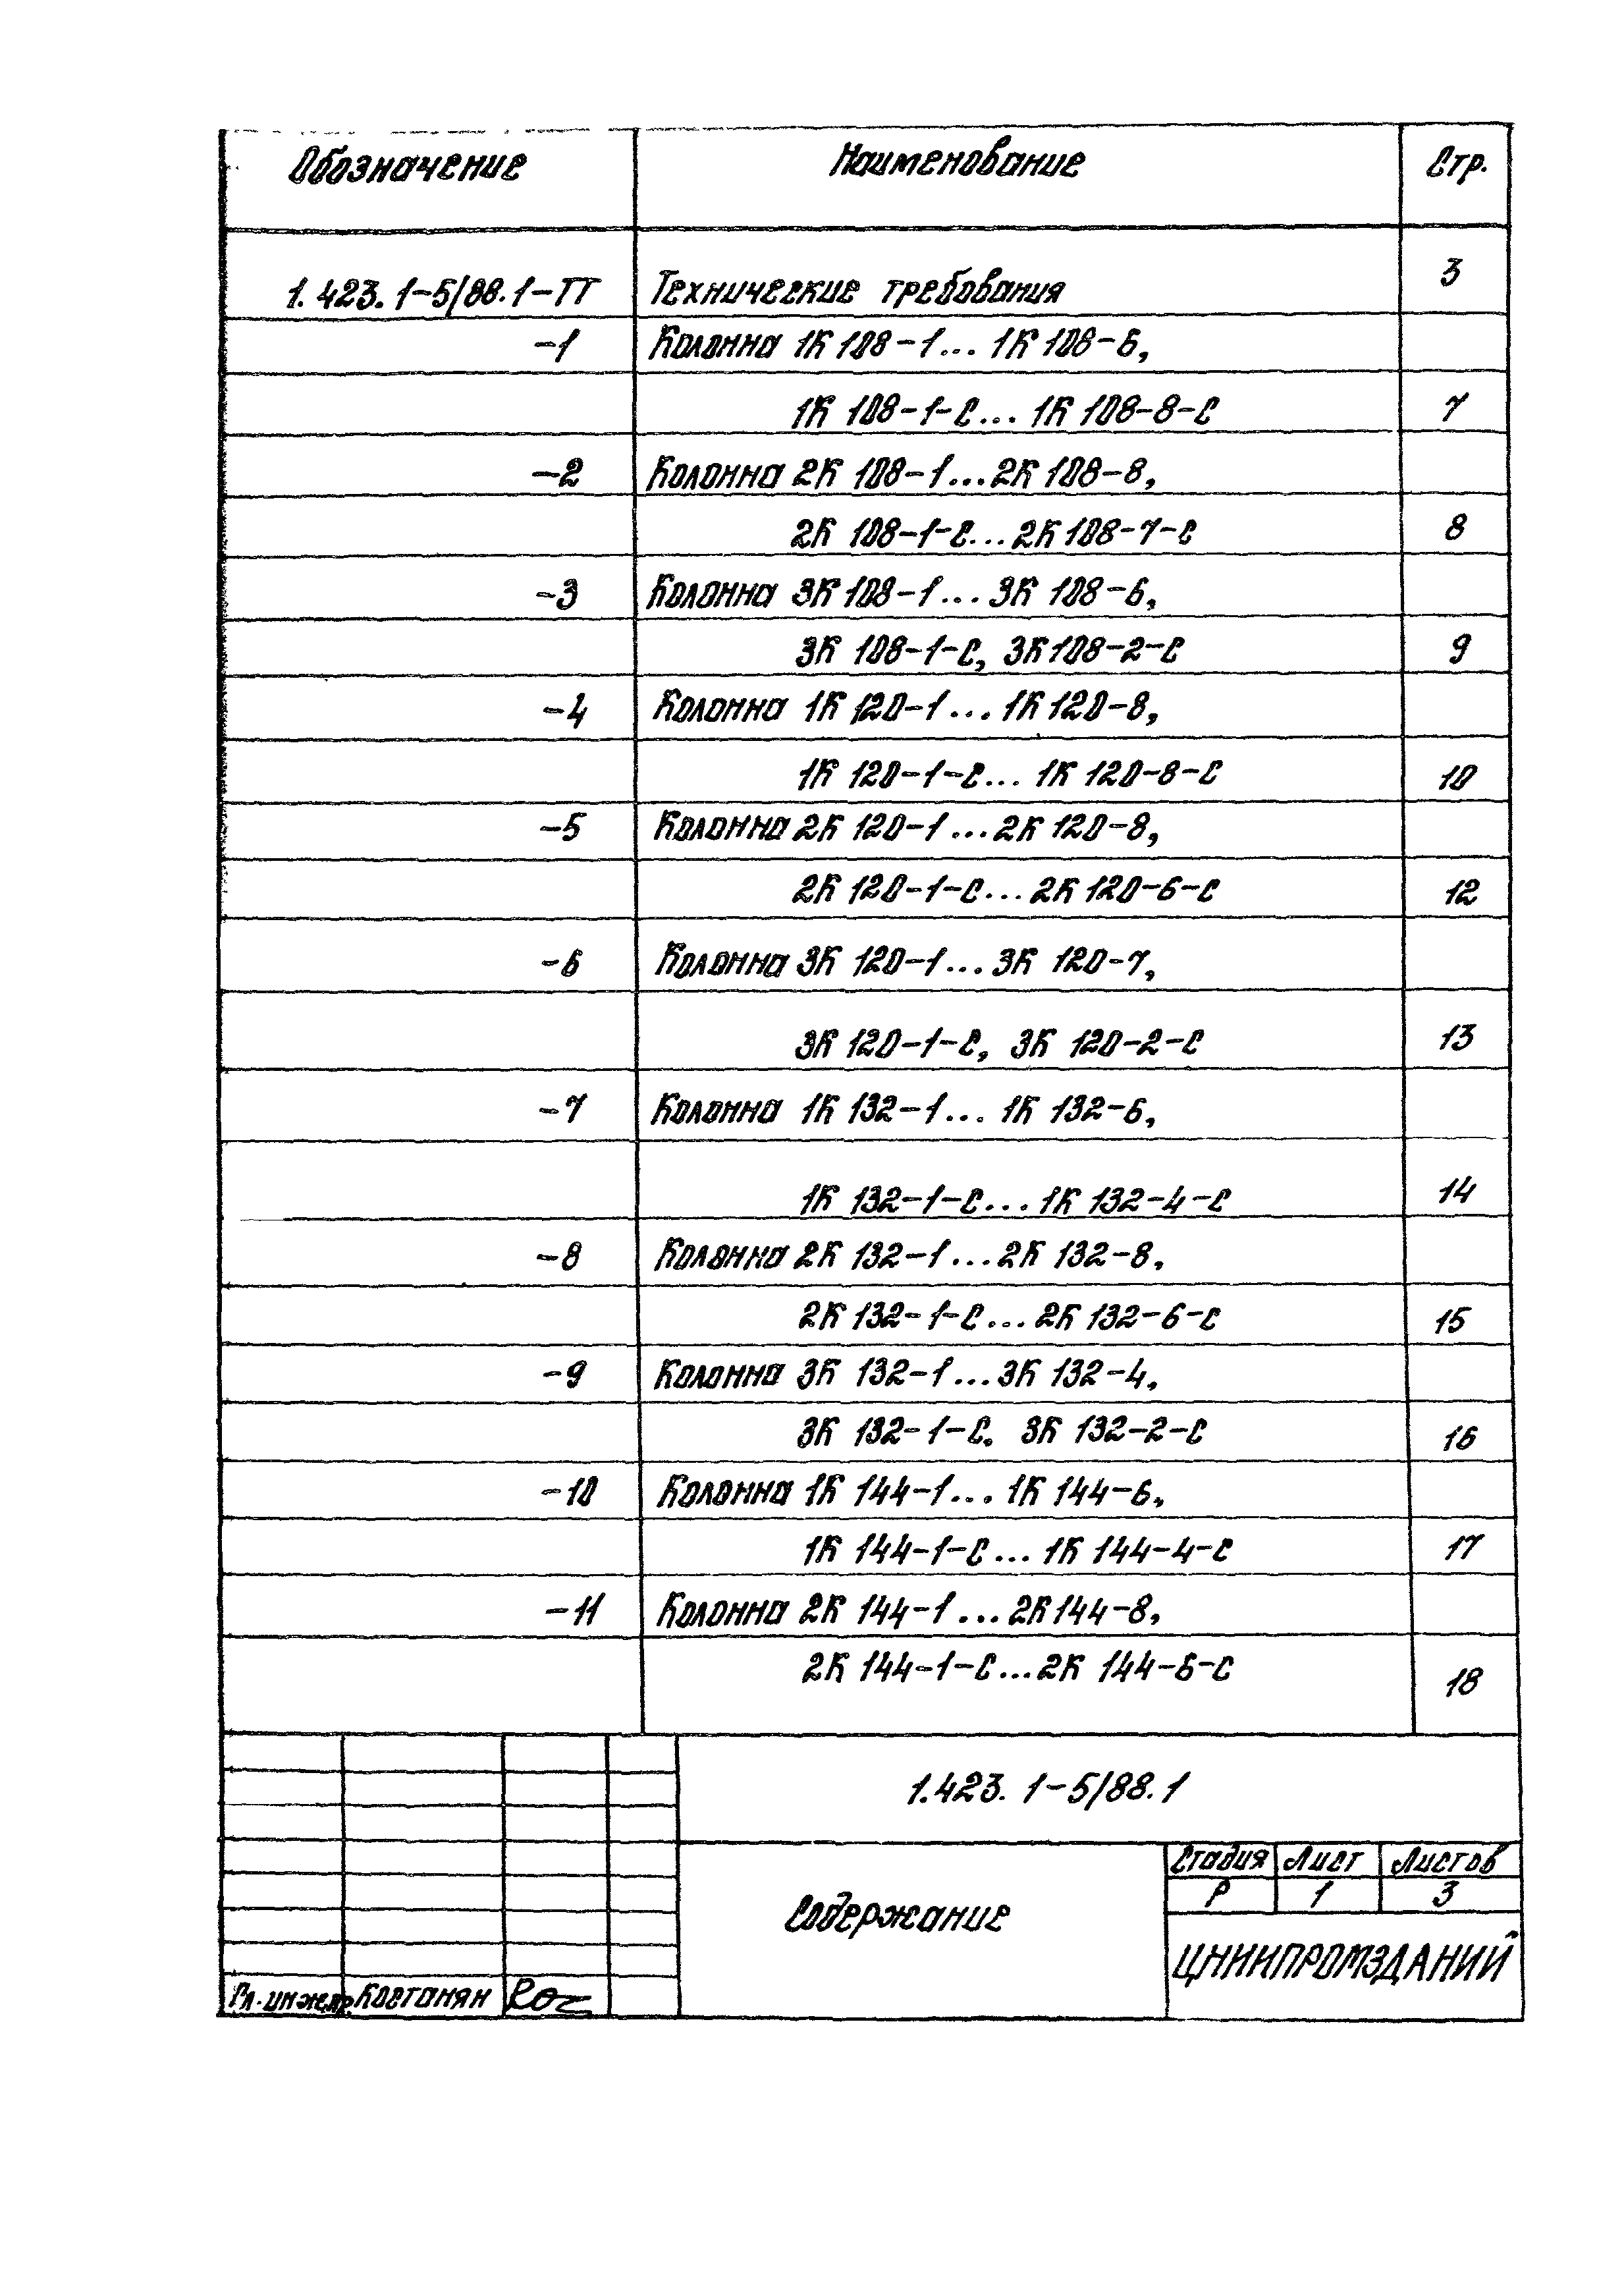 Обозначение Наименование Стр.
1.423.1-5/88.1-ТТ Технические требования 3
-1 Колонна 1К 108-1... 1К 108-6,
1К 108-1-С... 1К 108-8-С 7
-2 Колонна 2К 108-1...2К 108-8,
2К 108-1-С...2К 108-7-С 8
-3 Колонна 3К 108-1... 3К 108-6,
3К 108-1-С, 3К 108-2-С 9
-4 Колонна 1К 120-1... 1К 120-8,
1К 120-1-С... 1К 120-8-С 10
-5 Колонна 2К 120-1...2К 120-8,
2К 120-1-С...2К 120-6-С 12
-6 Колонна 3К 120-1...3К 120-7,
3К 120-1-С, 3К 120-2-С 13
-7 Колонна 1К 132-1... 1К 132-6,
1К 132-1-С... 1К 132-4-С 14
-8 Колонна 2К 132-1...2К 132-8,
2К 132-1-С...2К 132-6-С 15
-9 Колонна 3К 132-1...3К 132-4,
3К 132-1-С, 3К 132-2-С 16
-10 Колонна 1К 144-1... 1К 144-6,
1К 144-1-С... 1К 144-4-С 17
-11 Колонна 2К 144-1...2К 144-8,
2К 144-1-С...2К 144-6-С 18
1.423.1-5/88.1
Содержание
Стадия Лист Листов
Р 1 3
ЦНИИПРОМЗДАНИЙ
Гл.инж.пр. Костанян